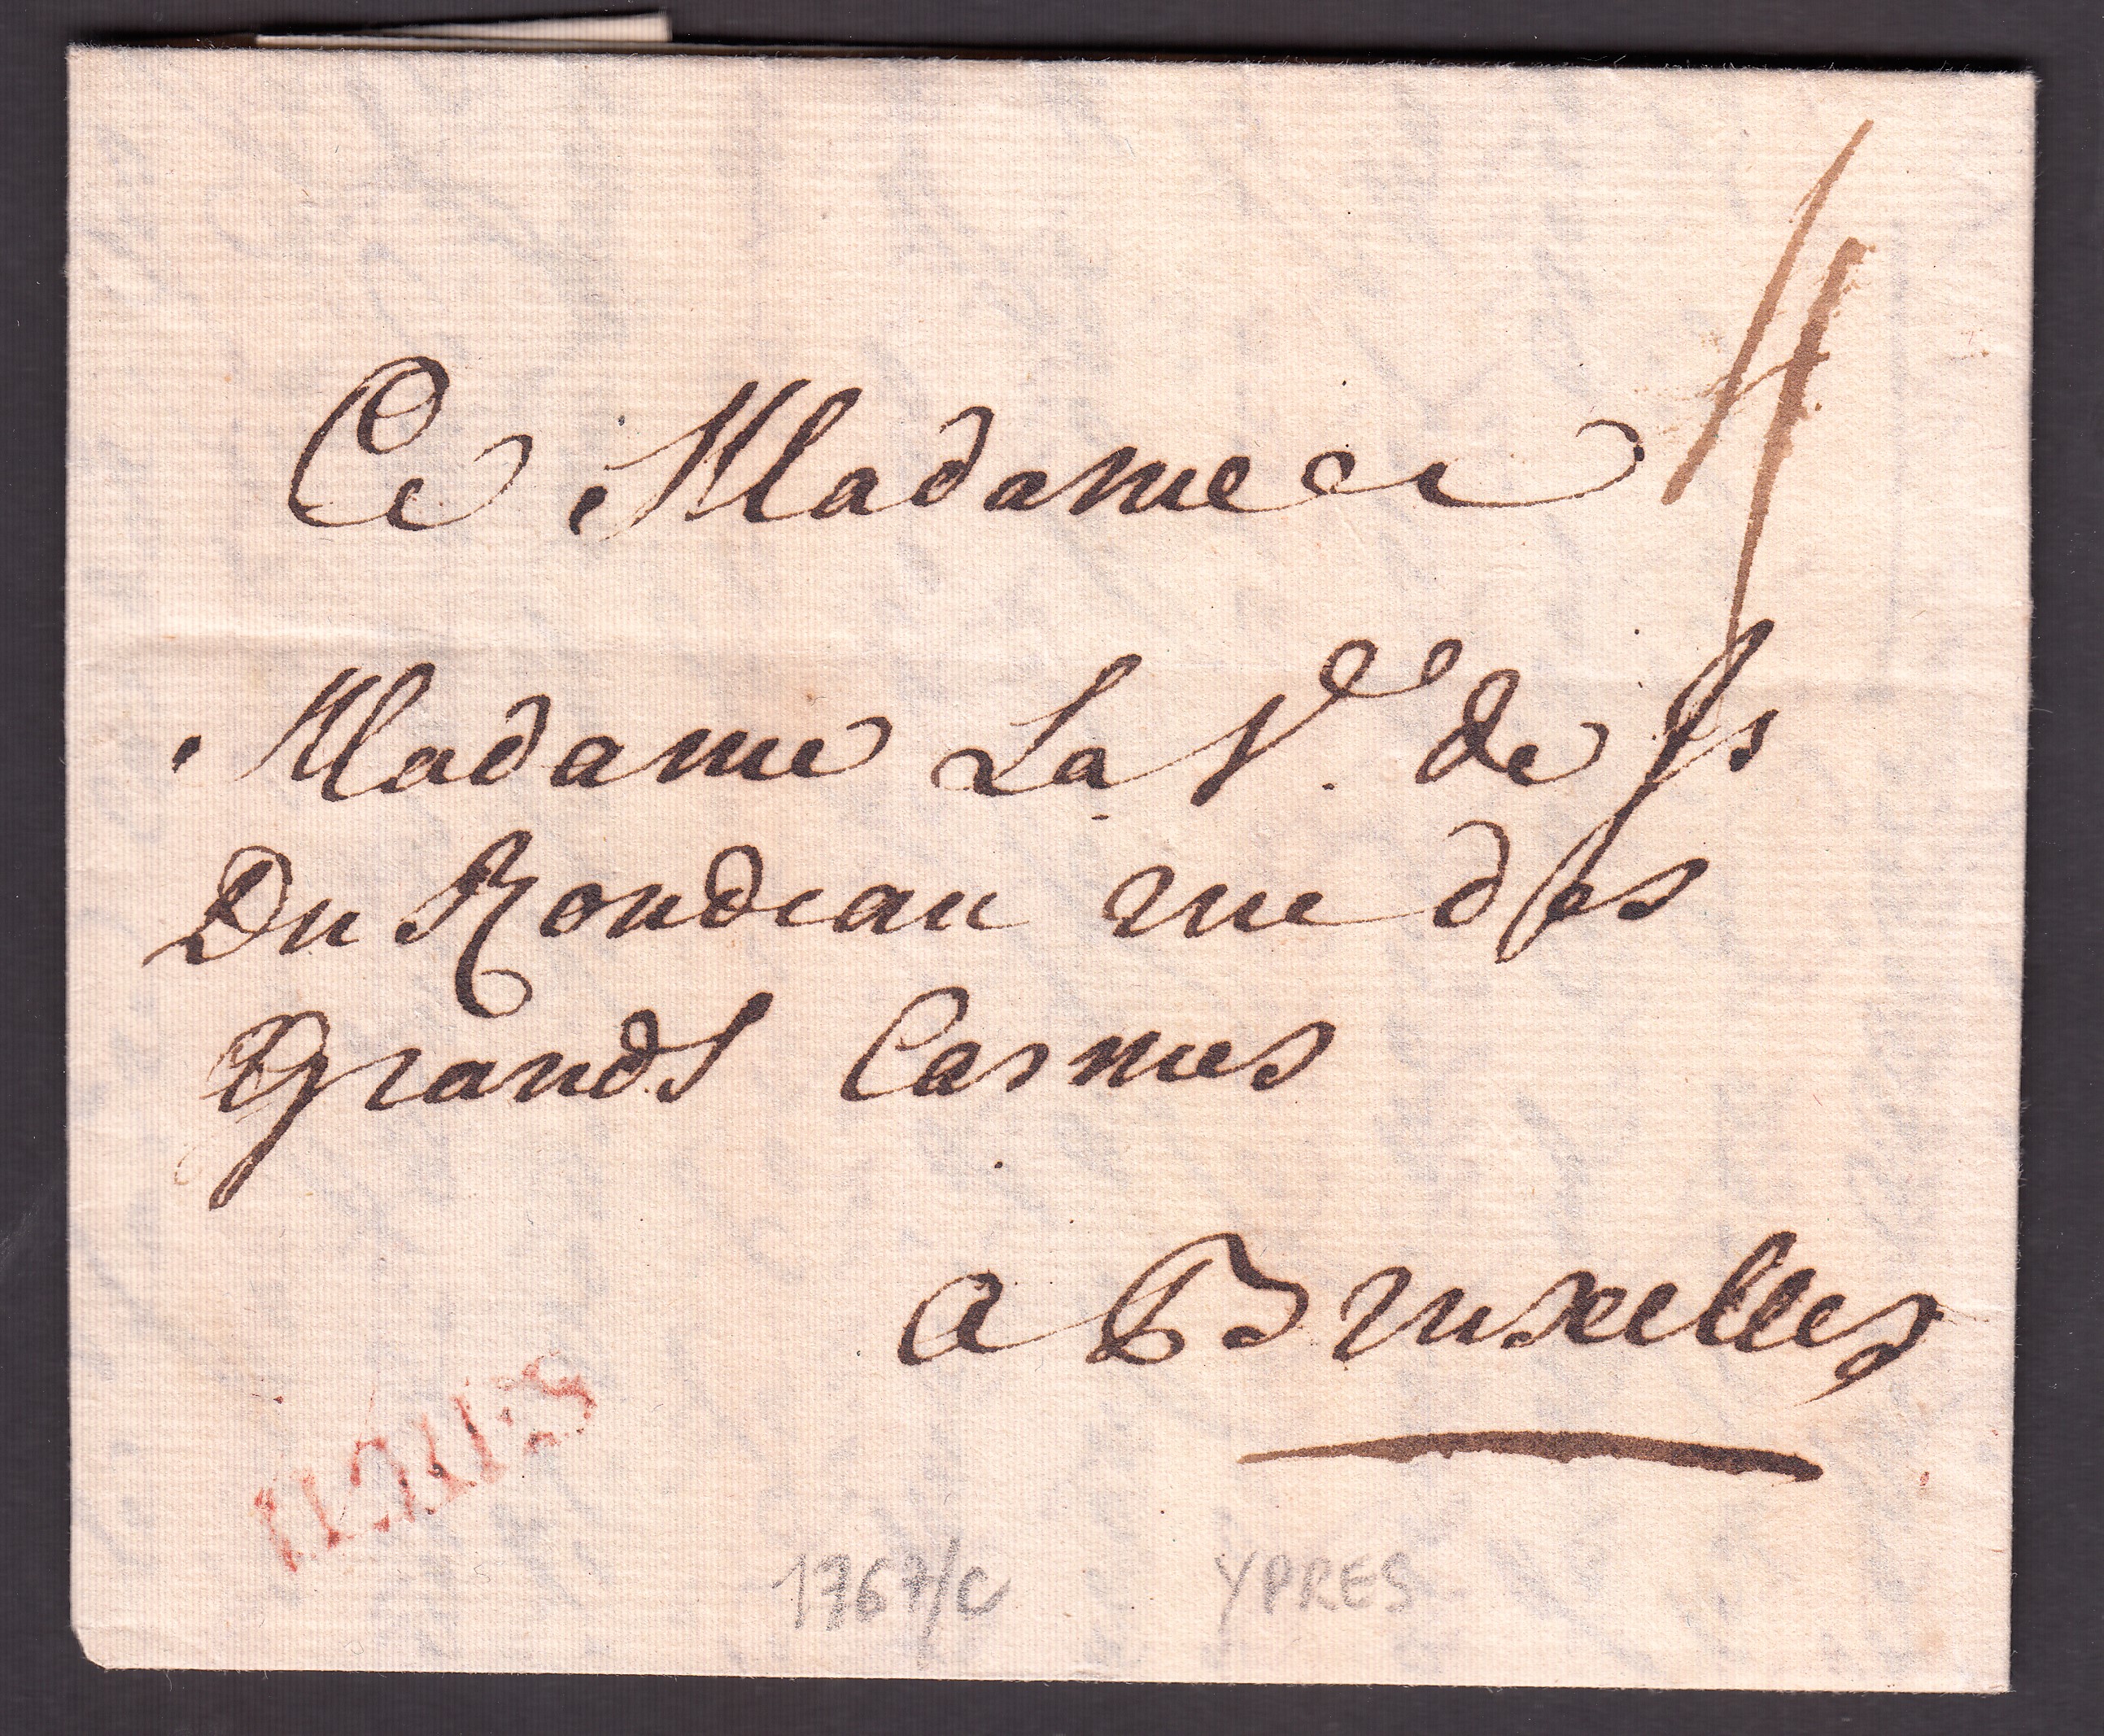 A Madame
Madame La Ve. de Js
Du Rondeau rue des
Grands Carmes
a Bruxelles
1767/c YPRES